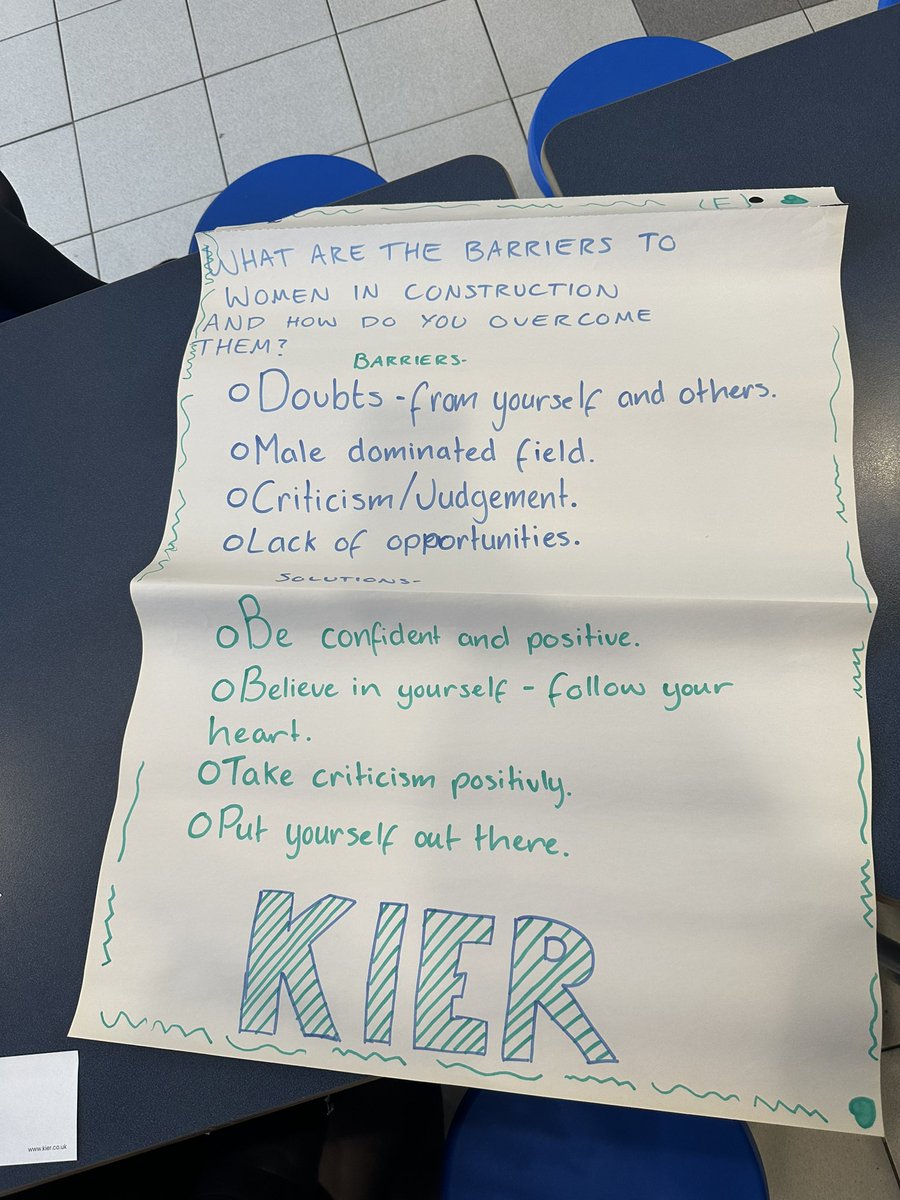 (F)
WHAT ARE THE BARRIERS TO
WOMEN IN CONSTRUCTION
AND HOW DO YOU OVERCOME
THEM?
BARRIERS-
Doubts - from yourself and others.
Male dominated field.
Criticism/Judgement.
Lack of opportunities.
SOLUTIONS-
Be confident and positive.
Believe in yourself - follow your
heart.
Take criticism positivly.
Put yourself out there.
KIER
www.kier.co.uk